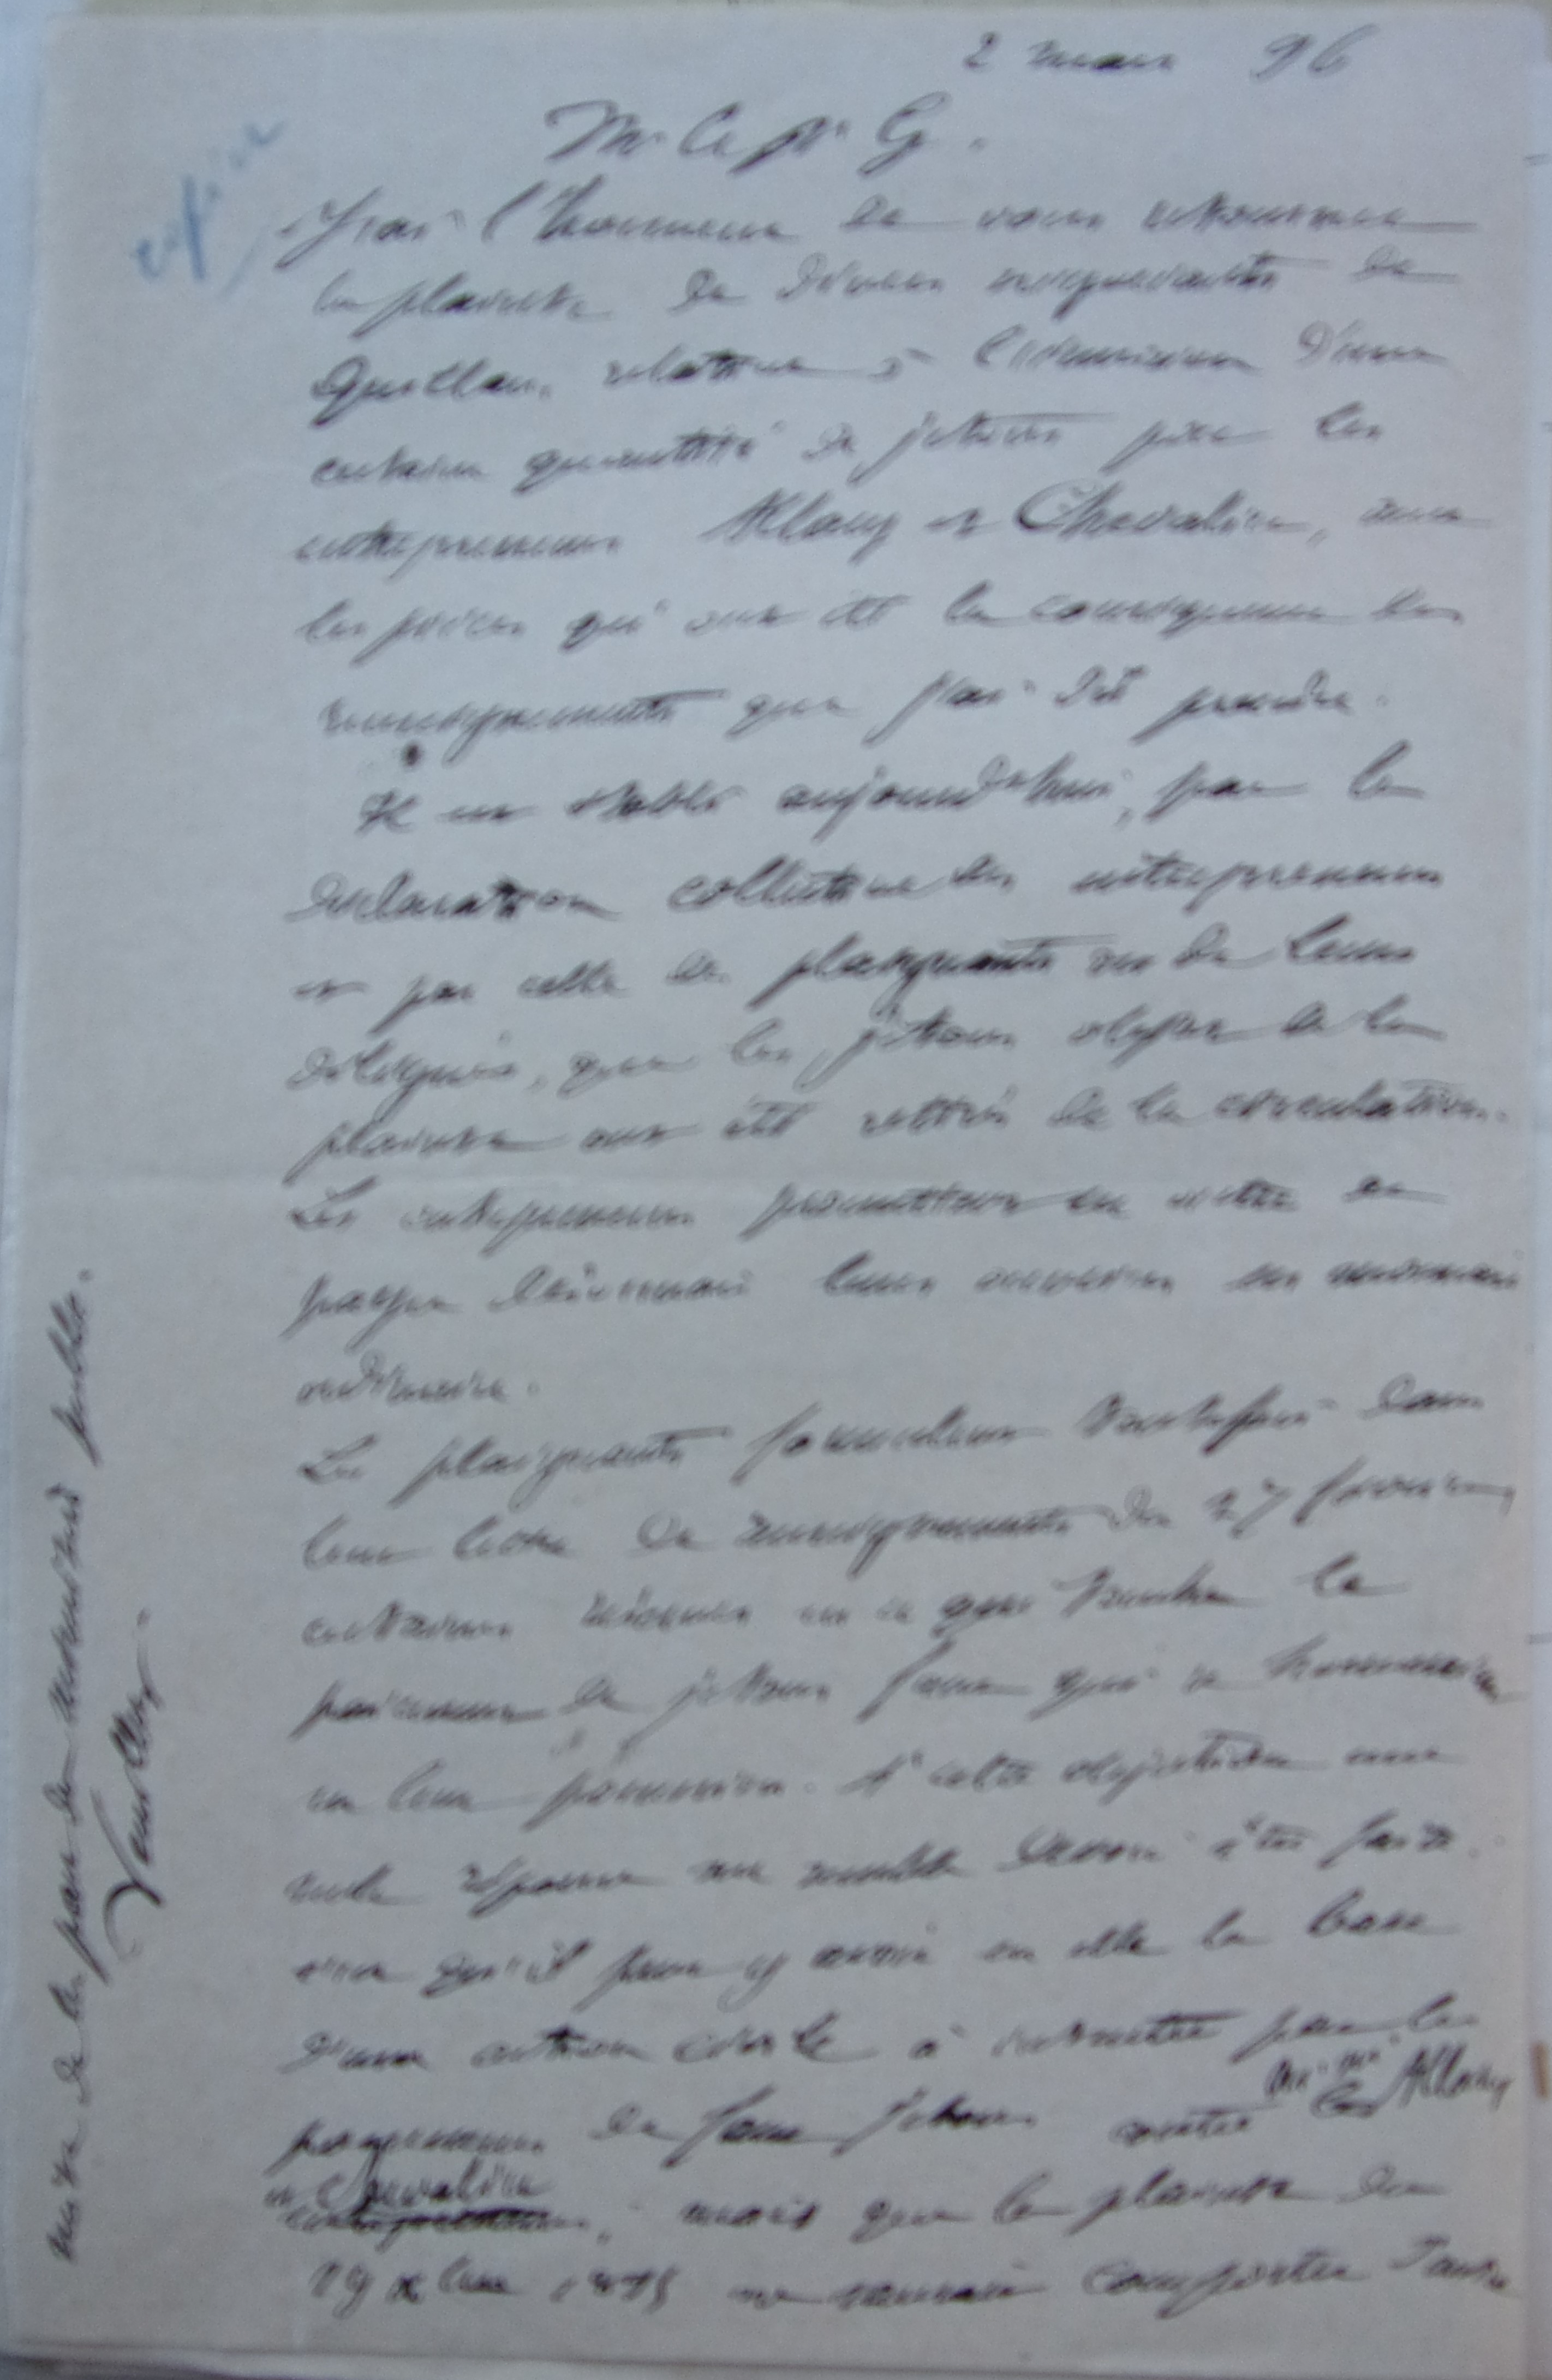 2 mars 96
Mr le Pr G.
copie
J'ai l'honneur de vous retourner
la plainte de divers négociants de
Quillan, relative à l'émission d'une
certaine quantité de jetons par les
entrepreneurs Allary et Chevalier, avec
les pièces qui ont été la conséquence des
renseignements que j'ai dû prendre.
Il est établi aujourd'hui, par la
déclaration collective des entrepreneurs
et par celle des plaignants ou de leurs
délégués, que les jetons objet de la
plainte ont été retirés de la circulation.
Les entrepreneurs promettent en outre de
payer désormais leurs ouvriers en monnaie
ordinaire.
Les plaignants formulent toutefois dans
leur lettre de renseignements du 27 février,
certaines réserves en ce qui touche le
paiement de jetons faux qui se trouveraient
en leur possession. A cette objection une
seule réponse me semble devoir être faite.
c'est qu'il peut y avoir en elle la base
d'une action civile à intenter pour le
payement de faux jetons contre les Allary
et Chevalier
entrepreneurs, mais que la plainte du
19 xbre 1895 ne saurait comporter d'autre
suite de la part du ministère public.